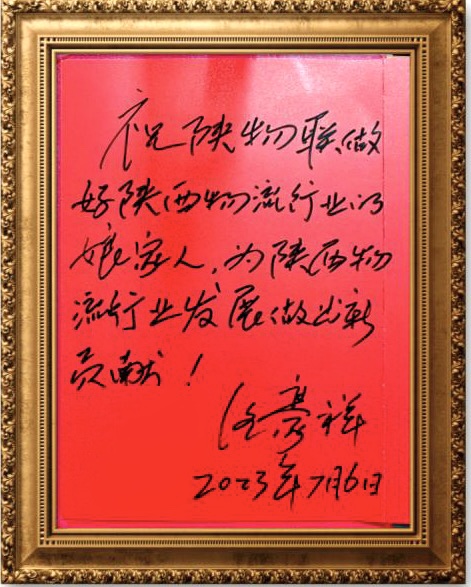 祝陕物联做
好陕西物流行业的
娘家人，为陕西物
流行业发展做出新
贡献！
任豪祥
2023年7月6日